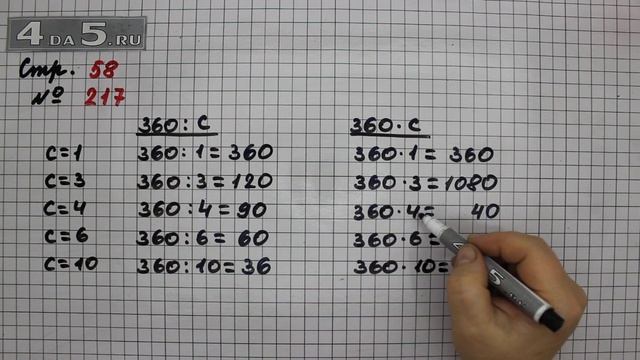 4DA5.RU
Стр. 58
№ 217
360 : с 360 · с
с=1 360 : 1 = 360 360 · 1 = 360
с=3 360 : 3 = 120 360 · 3 = 1080
с=4 360 : 4 = 90 360 · 4 = 40
с=6 360 : 6 = 60 360 · 6 =
с=10 360 : 10 = 36 360 · 10 =